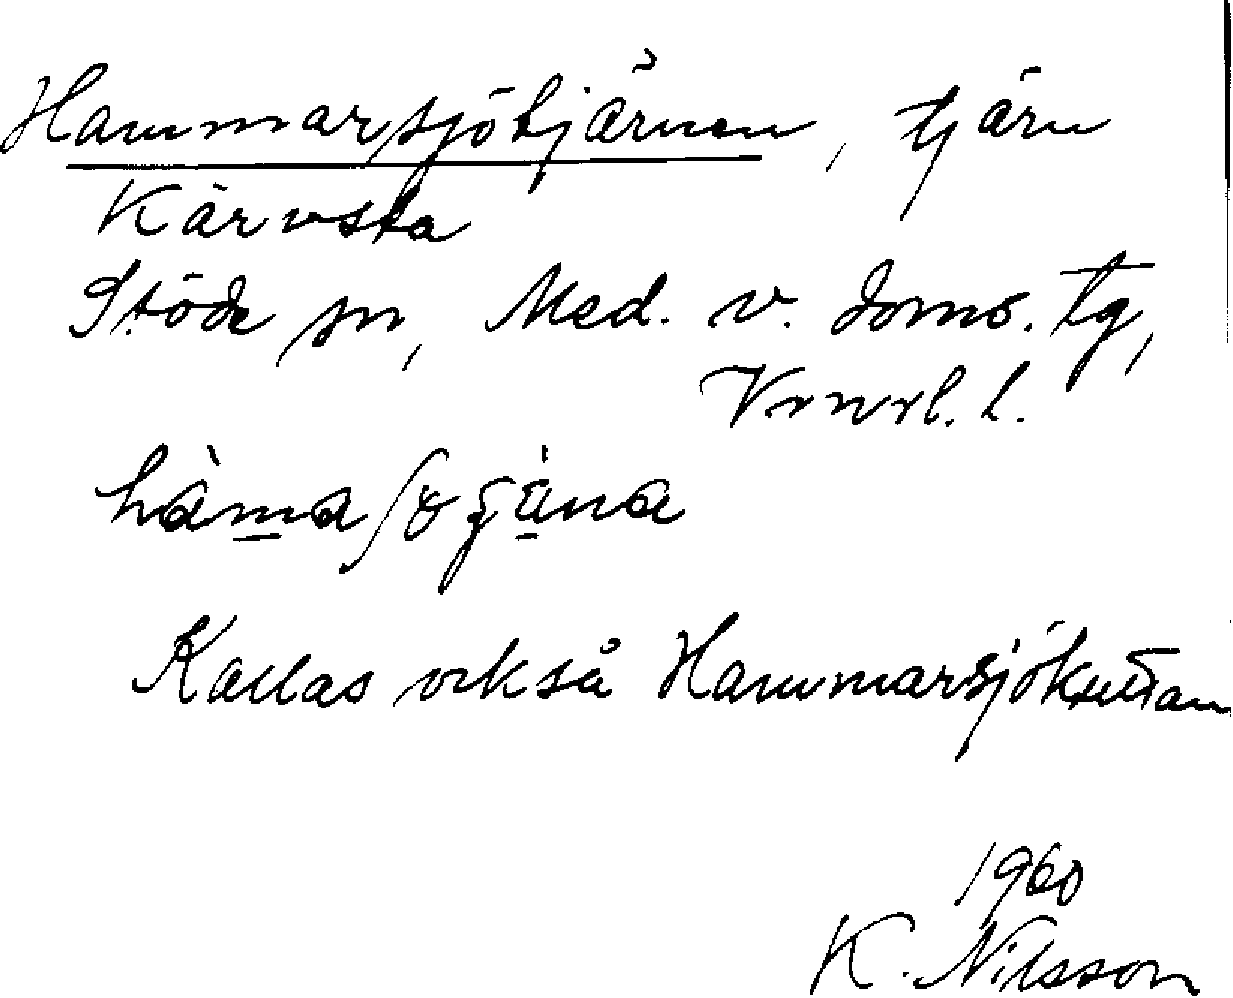 Hammarsjötjärnen, tjärn
Kärvsta
Stöde sn, Med. v. doms. tg,
Vrnrl. l.
hàma ʃø
Kallas också Hammarsjökuttan
1960
K. Nilsson